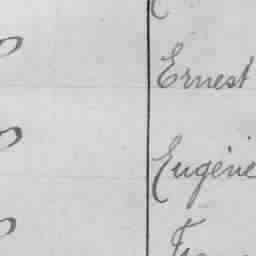 Ernest
Eugénie